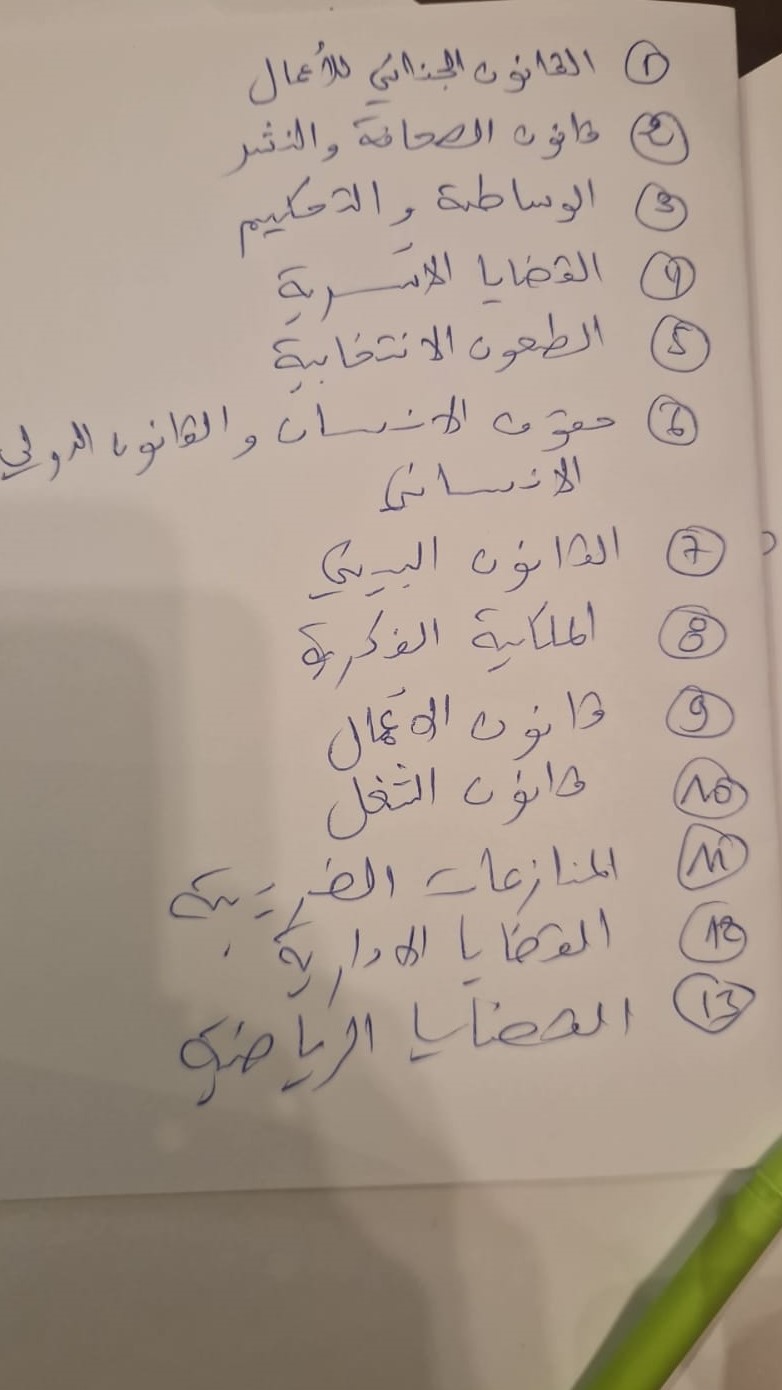 1 القانون الجنائي للأعمال
2 قانون الصحافة والنشر
3 الوساطة و التحكيم
4 القضايا الأسرية
5 الطعون الانتخابية
6 حقوق الانسان و القانون الدولي
الانساني
7 القانون البيئي
8 الملكية الفكرية
9 قانون الأعمال
10 قانون الشغل
11 المنازعات الضريبية
12 القضايا الادارية
13 القضايا الرياضية